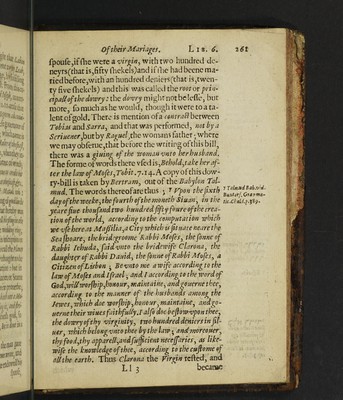 Of their Mariages. L I B. 6. 261
spouse, if she were a virgin, with two hundred de-
neyrs (that is, fifty shekels) and if she had beene ma-
ried before, with an hundred deniers (that is, twen-
ty five shekels) and this was called the root or prin-
cipall of the dowry: the dowry might not be lesse, but
more, so much as he would, though it were to a ta-
lent of gold. There is mention of a contract between
Tobias and Sarra, and that was performed, not by a
Scrivener, but by Raguel, the womans father; where
we may observe, that before the writing of this bill,
there was a giving of the woman unto her husband.
The forme of words there used is, Behold, take her af-
ter the law of Moses, Tobit. 7. 14. A copy of this dow-
ry-bill is taken by Bertram, out of the Babylon Tal-
mud. The words thereof are thus; Upon the sixth
day of the weeke, the fourth of the moneth Sivan, in the
yeare five thousand two hundred fifty foure of the crea-
tion of the world, according to the computation which
we use here at Massilia, a City which is situate neare the
Sea shoare, the bridegroome Rabbi Moses, the sonne of
Rabbi Iehuda, said unto the bridewife Clarona, the
daughter of Rabbi David, the sonne of Rabbi Moses, a
Citizen of Lisbon; Be unto me a wife according to the
law of Moses and Israel, and I according to the word of
God, will worship, honour, maintaine, and governe thee,
according to the manner of the husbands among the
Iewes, which doe worship, honour, maintaine, and go-
verne their wives faithfully. I also doe bestow upon thee,
the dowry of thy virginity, two hundred deniers in sil-
ver, which belong unto thee by the law; and moreover,
thy food, thy apparell, and sufficient necessaries, as like-
wise the knowledge of thee, according to the custome of
all the earth. Thus Clarona the Virgin rested, and
L l 3 became